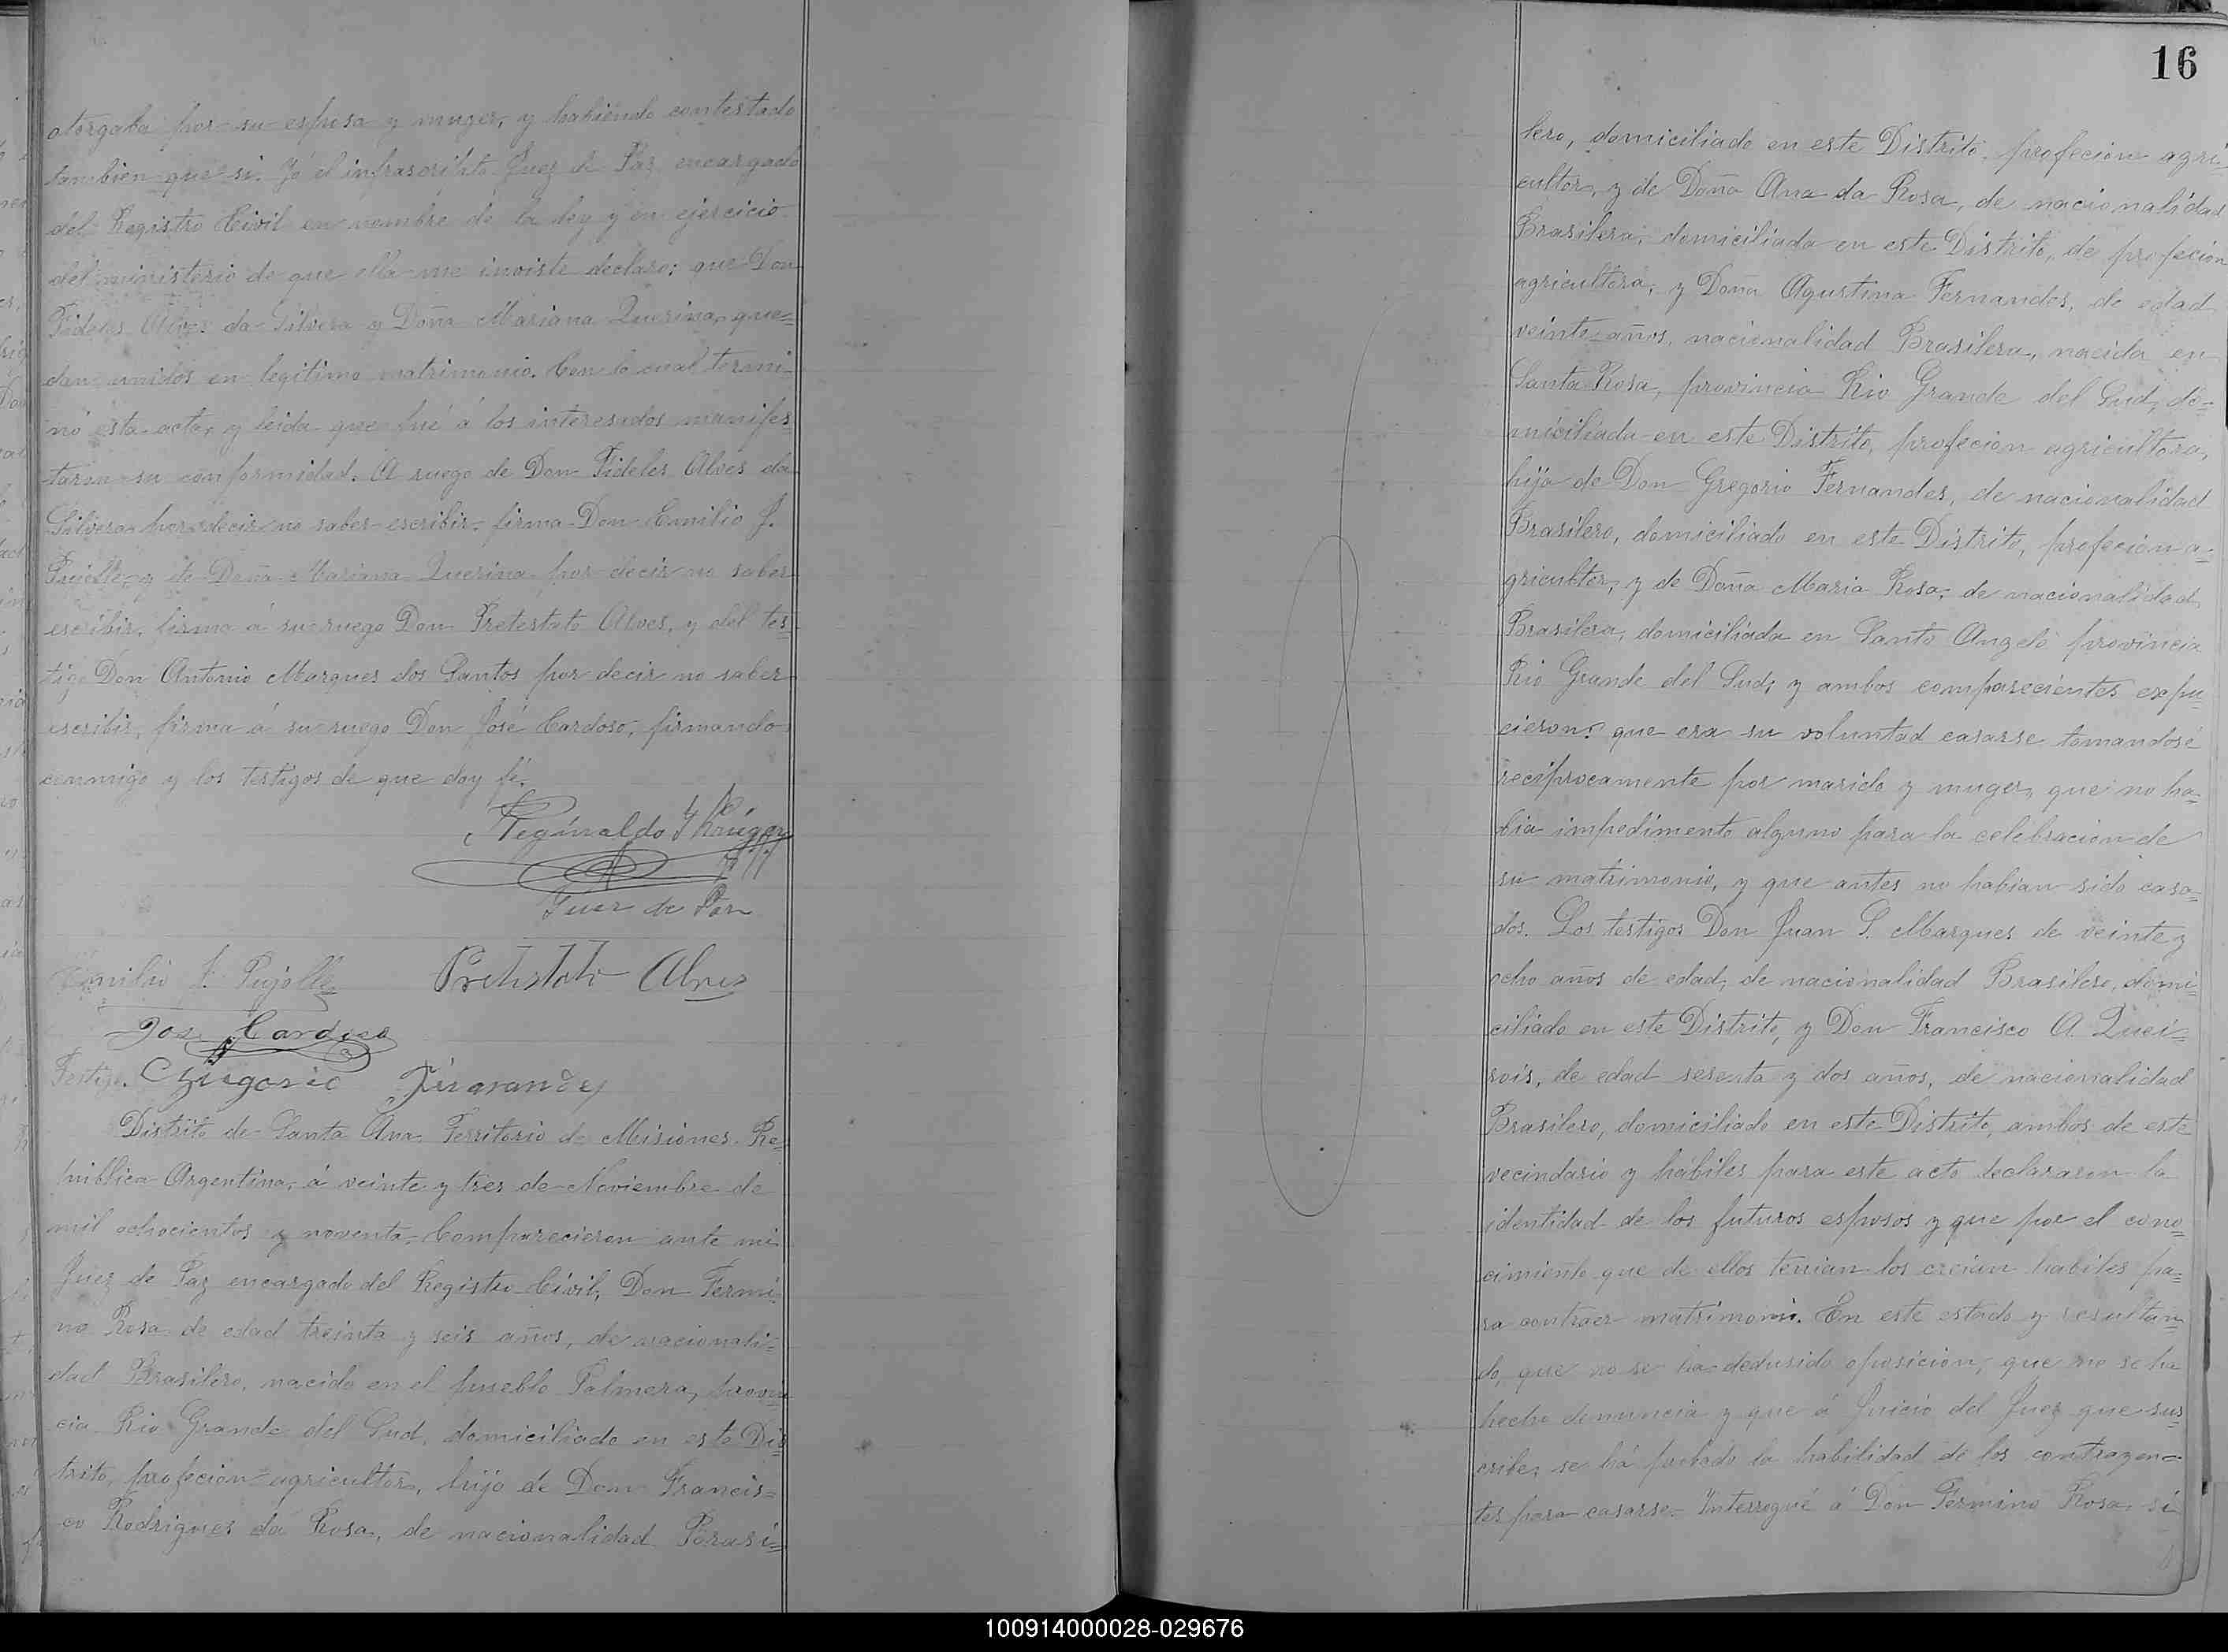 otorgaba por su esposa y muger, y habiendo contestado
tambien que si. Yó el infrascripto Juez de Paz encargado
del Registro Civil en nombre de la ley y en ejercicio
del ministerio de que ella me inviste declaro: que Don
Fideles Alves da Silvera y Doña Mariana Querina, que=
dan unidos en legitimo matrimonio. Con lo cual termi-
nó esta acta, y leida que fué á los interesados manifes
taron su conformidad. A ruego de Don Fideles Alves da
Silvera por decir no saber escribir, firma Don Emilio J.
Pujolle, y de Doña Mariana Querina por decir no saber
escribir, firma á su ruego Don Pretestato Alves, y del tes
tigo Don Antonio Marques dos Santos por decir no saber
escribir, firma á su ruego Don José Cardoso, firmando
conmigo y los testigos de que doy fé.
Reginaldo Krüger
Juez de Paz
Emilio J. Pujolle Pretestato Alves
Jose Cardoso
Testigo. Gregorio
Distrito de Santa Ana Territorio de Misiones Re=
publica Argentina, á veinte y tres de Noviembre de
mil ochocientos y noventa, Comparecieron ante mi
Juez de Paz encargado del Registro Civil, Don Fermi
no Rosa de edad treinta y seis años, de nacionali=
dad Brasilero, nacido en el pueblo Palmera, provin
cia Rio Grande del Sud, domiciliado en este Dis
trito, profecion agricultor, hijo de Don Francis=
co Rodrigues da Rosa, de nacionalidad Brasi=
16
lero, domiciliado en este Distrito, profecion agri
cultor, y de Doña Ana da Rosa, de nacionalidad
Brasilera, domiciliada en este Distrito, de profecion
agricultora, y Doña Agustina Fernandes, de edad
veinte años, nacionalidad Brasilera, nacida en
Santa Rosa, provincia Rio Grande del Sud, do=
miciliada en este Distrito, profecion agricultora,
hija de Don Gregorio Fernandes, de nacionalidad
Brasilero, domiciliado en este Distrito, profecion a=
gricultor, y de Doña Maria Rosa, de nacionalidad
Brasilera, domiciliada en Santo Angelo provincia
Rio Grande del Sud; y ambos comparecientes expu
cieron: que era su voluntad casarse tomandosé
reciprocamente por marido y muger, que no ha=
bia impedimento alguno para la celebracion de
su matrimonio, y que antes no habian sido casa=
dos. Los testigos Don Juan S. Marques de veinte y
ocho años de edad, de nacionalidad Brasilero, domi
ciliado en este Distrito, y Don Francisco A. Quei=
rois, de edad sesenta y dos años, de nacionalidad
Brasilero, domiciliado en este Distrito, ambos de este
vecindario y hábiles para este acto declararon la
identidad de los futuros esposos y que por el cono
cimiento que de ellos tenian los creian habiles pa=
ra contraer matrimonio. En este estado y resultan
do, que no se ha dedusido oposicion, que no se ha
hecho denuncia y que á Juicio del Juez que sus
cribe, se há probado la habilidad de los contrayen=
tes para casarse. Interrogué á Don Fermino Rosa, si
100914000028-029676